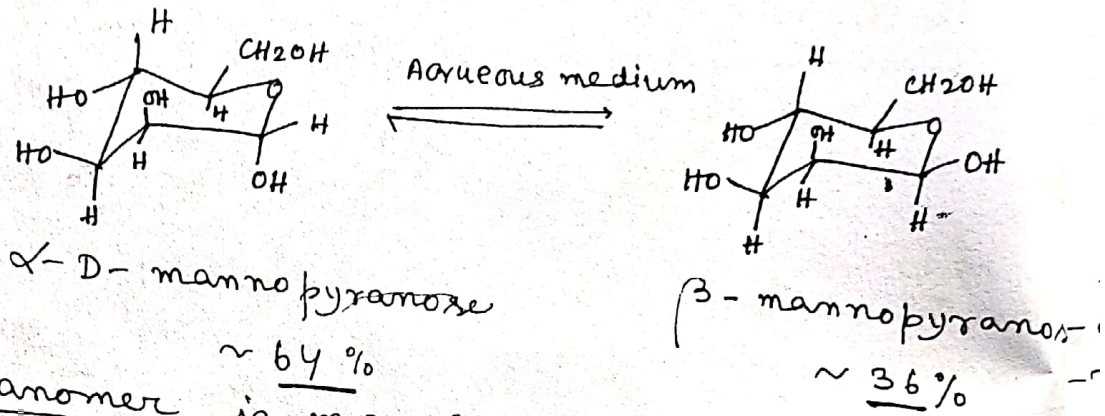 H
CH2OH
HO
OH
H
O
H
HO
H
OH
H
Aqrueous medium
H
CH2OH
HO
OH
H
O
OH
HO
H
H
H
α-D-mannopyranose
~ 64 %
β-mannopyranos-
~ 36 %
anomer is